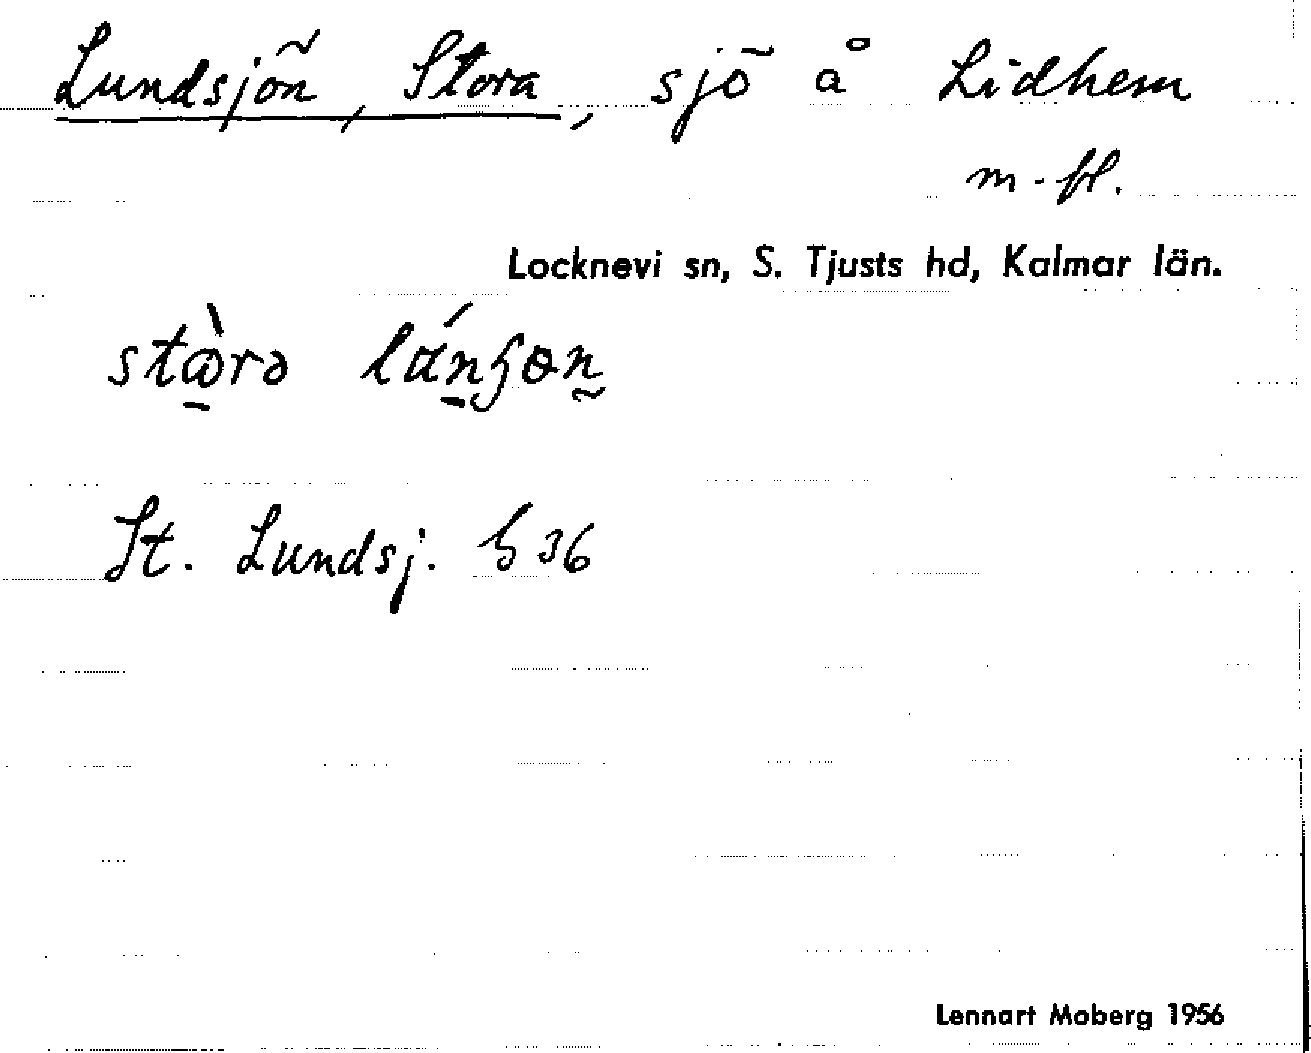 Lundsjön, Stora, sjö å Lidhem
m.fl.
Locknevi sn, S. Tjusts hd, Kalmar län.
St. Lundsj. G 36
Lennart Moberg 1956